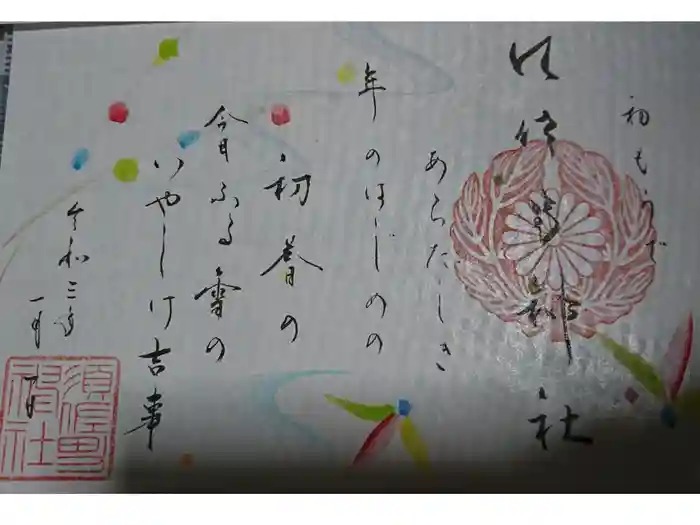 初もうで
あらたしき
年のはじめの
初春の
今日ふる雪の
いやしけ吉事
令和三年
一月一日